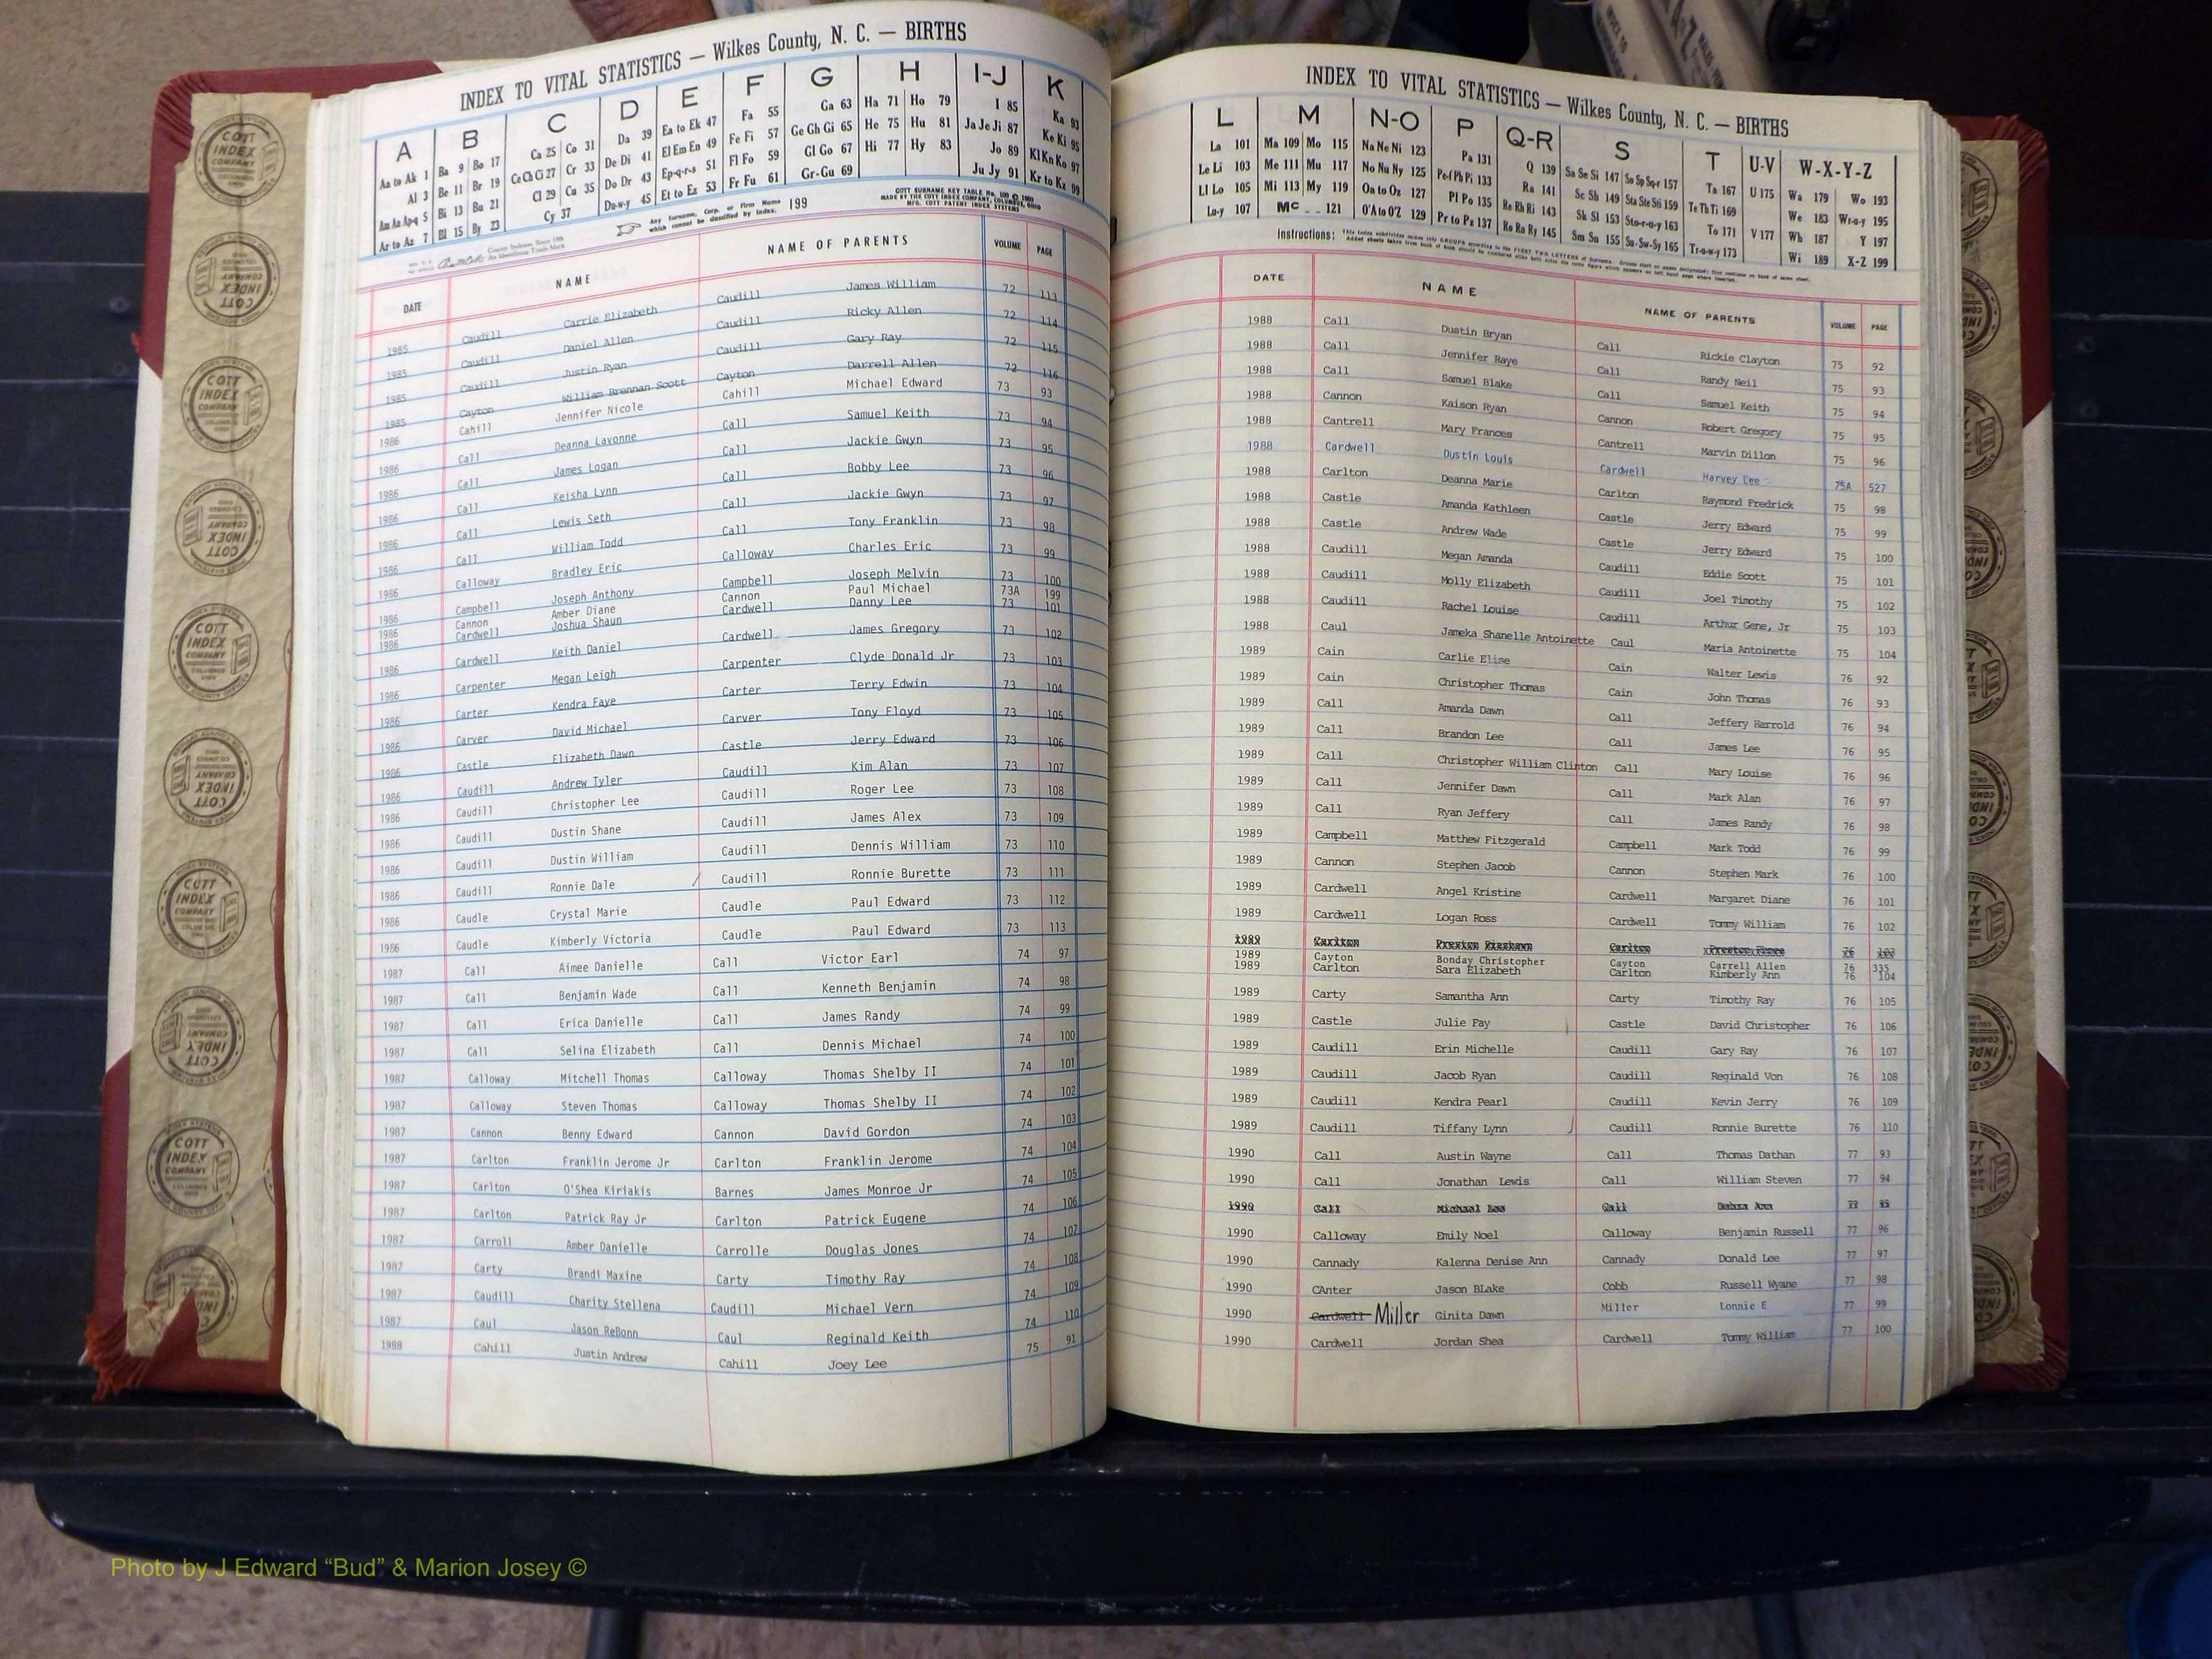 INDEX TO VITAL STATISTICS — Wilkes County, N. C. — BIRTHS
A B C D E F G H I-J K
Aa to Ak 1 Ba 9 Bo 17 Ca 25 Co 31 Da 39 Ea to Ek 47 Fa 55 Ga 63 Ha 71 Ho 79 I 85 Ka 93
Al 3 Be 11 Br 19 Ce Ch Ci 27 Cr 33 De Di 41 El Em En 49 Fe Fi 57 Ge Gh Gi 65 He 75 Hu 81 Ja Je Ji 87 Ke Ki 95
Am An Ap-q 5 Bi 13 Bu 21 Cl 29 Cu 35 Do Dr 43 Ep-q-r-s 51 Fl Fo 59 Gl Go 67 Hi 77 Hy 83 Jo 89 Kl Kn Ko 97
Ar to Az 7 Bl 15 By 23 Cy 37 Du-w-y 45 Et to Ez 53 Fr Fu 61 Gr-Gu 69 Ju Jy 91 Kr to Kz 99
Any Surname, Corp. or Firm Name which cannot be classified by Index. 199
COTT SURNAME KEY TABLE No. 100 © 1980
MADE BY THE COTT INDEX COMPANY, COLUMBUS, OHIO
MFG. COTT PATENT INDEX SYSTEMS
DATE NAME NAME OF PARENTS VOLUME PAGE
1985 Caudill Carrie Elizabeth Caudill James William 72 113
1985 Caudill Daniel Allen Caudill Ricky Allen 72 114
1985 Caudill Justin Ryan Caudill Gary Ray 72 115
1985 Cayton William Brennan Scott Cayton Darrell Allen 72 116
1986 Cahill Jennifer Nicole Cahill Michael Edward 73 93
1986 Call Deanna Lavonne Call Samuel Keith 73 94
1986 Call James Logan Call Jackie Gwyn 73 95
1986 Call Keisha Lynn Call Bobby Lee 73 96
1986 Call Lewis Seth Call Jackie Gwyn 73 97
1986 Call William Todd Call Tony Franklin 73 98
1986 Calloway Bradley Eric Calloway Charles Eric 73 99
1986 Campbell Joseph Anthony Campbell Joseph Melvin 73 100
1986 Cannon Amber Diane Cannon Paul Michael 73A 199
1986 Cardwell Joshua Shaun Cardwell Danny Lee 73 101
1986 Cardwell Keith Daniel Cardwell James Gregory 73 102
1986 Carpenter Megan Leigh Carpenter Clyde Donald Jr 73 103
1986 Carter Kendra Faye Carter Terry Edwin 73 104
1986 Carver David Michael Carver Tony Floyd 73 105
1986 Castle Elizabeth Dawn Castle Jerry Edward 73 106
1986 Caudill Andrew Tyler Caudill Kim Alan 73 107
1986 Caudill Christopher Lee Caudill Roger Lee 73 108
1986 Caudill Dustin Shane Caudill James Alex 73 109
1986 Caudill Dustin William Caudill Dennis William 73 110
1986 Caudill Ronnie Dale Caudill Ronnie Burette 73 111
1986 Caudle Crystal Marie Caudle Paul Edward 73 112
1986 Caudle Kimberly Victoria Caudle Paul Edward 73 113
1987 Call Aimee Danielle Call Victor Earl 74 97
1987 Call Benjamin Wade Call Kenneth Benjamin 74 98
1987 Call Erica Danielle Call James Randy 74 99
1987 Call Selina Elizabeth Call Dennis Michael 74 100
1987 Calloway Mitchell Thomas Calloway Thomas Shelby II 74 101
1987 Calloway Steven Thomas Calloway Thomas Shelby II 74 102
1987 Cannon Benny Edward Cannon David Gordon 74 103
1987 Carlton Franklin Jerome Jr Carlton Franklin Jerome 74 104
1987 Carlton O'Shea Kiriakis Barnes James Monroe Jr 74 105
1987 Carlton Patrick Ray Jr Carlton Patrick Eugene 74 106
1987 Carroll Amber Danielle Carrolle Douglas Jones 74 107
1987 Carty Brandi Maxine Carty Timothy Ray 74 108
1987 Caudill Charity Stellena Caudill Michael Vern 74 109
1987 Caul Jason ReBonn Caul Reginald Keith 74 110
1988 Cahill Justin Andrew Cahill Joey Lee 75 91
INDEX TO VITAL STATISTICS — Wilkes County, N. C. — BIRTHS
L M N-O P Q-R S T U-V W-X-Y-Z
La 101 Ma 109 Mo 115 Na Ne Ni 123 Pa 131 Q 139 Sa Se Si 147 So Sp Sq-r 157 Ta 167 U 175 Wa 179 Wo 193
Le Li 103 Me 111 Mu 117 No Nu Ny 125 Pe-f Ph Pi 133 Ra 141 Sc Sh 149 Sta Ste Sti 159 Te Th Ti 169 We 183 Wr-u-y 195
Ll Lo 105 Mi 113 My 119 Oa to Oz 127 Pl Po 135 Re Rh Ri 143 Sk Sl 153 Sto-r-u-y 163 To 171 V 177 Wh 187 Y 197
Lu-y 107 Mc 121 O'A to O'Z 129 Pr to Pz 137 Ro Ru Ry 145 Sm Sn 155 Su-Sw-Sy 165 Tr-u-w-y 173 Wi 189 X-Z 199
Instructions:
DATE NAME NAME OF PARENTS VOLUME PAGE
1988 Call Dustin Bryan Call Rickie Clayton 75 92
1988 Call Jennifer Raye Call Randy Neil 75 93
1988 Call Samuel Blake Call Samuel Keith 75 94
1988 Cannon Kaison Ryan Cannon Robert Gregory 75 95
1988 Cantrell Mary Frances Cantrell Marvin Dillon 75 96
1988 Cardwell Dustin Louis Cardwell Harvey Lee 75A 527
1988 Carlton Deanna Marie Carlton Raymond Fredrick 75 98
1988 Castle Amanda Kathleen Castle Jerry Edward 75 99
1988 Castle Andrew Wade Castle Jerry Edward 75 100
1988 Caudill Megan Amanda Caudill Eddie Scott 75 101
1988 Caudill Molly Elizabeth Caudill Joel Timothy 75 102
1988 Caudill Rachel Louise Caudill Arthur Gene, Jr 75 103
1988 Caul Jameka Shanelle Antoinette Caul Maria Antoinette 75 104
1989 Cain Carlie Elise Cain Walter Lewis 76 92
1989 Cain Christopher Thomas Cain John Thomas 76 93
1989 Call Amanda Dawn Call Jeffery Harrold 76 94
1989 Call Brandon Lee Call James Lee 76 95
1989 Call Christopher William Clinton Call Mary Louise 76 96
1989 Call Jennifer Dawn Call Mark Alan 76 97
1989 Call Ryan Jeffery Call James Randy 76 98
1989 Campbell Matthew Fitzgerald Campbell Mark Todd 76 99
1989 Cannon Stephen Jacob Cannon Stephen Mark 76 100
1989 Cardwell Angel Kristine Cardwell Margaret Diane 76 101
1989 Cardwell Logan Ross Cardwell Tommy William 76 102
1989 Cayton Bonday Christopher Cayton Carrell Allen 76 335
1989 Carlton Sara Elizabeth Carlton Kimberly Ann 76 104
1989 Carty Samantha Ann Carty Timothy Ray 76 105
1989 Castle Julie Fay Castle David Christopher 76 106
1989 Caudill Erin Michelle Caudill Gary Ray 76 107
1989 Caudill Jacob Ryan Caudill Reginald Von 76 108
1989 Caudill Kendra Pearl Caudill Kevin Jerry 76 109
1989 Caudill Tiffany Lynn Caudill Ronnie Burette 76 110
1990 Call Austin Wayne Call Thomas Dathan 77 93
1990 Call Jonathan Lewis Call William Steven 77 94
1990 Calloway Emily Noel Calloway Benjamin Russell 77 96
1990 Cannady Kalenna Denise Ann Cannady Donald Lee 77 97
1990 CAnter Jason BLake Cobb Russell Wyane 77 98
1990 Cardwell Miller Ginita Dawn Miller Lonnie E 77 99
1990 Cardwell Jordan Shea Cardwell Tommy William 77 100
Photo by J Edward “Bud” & Marion Josey ©